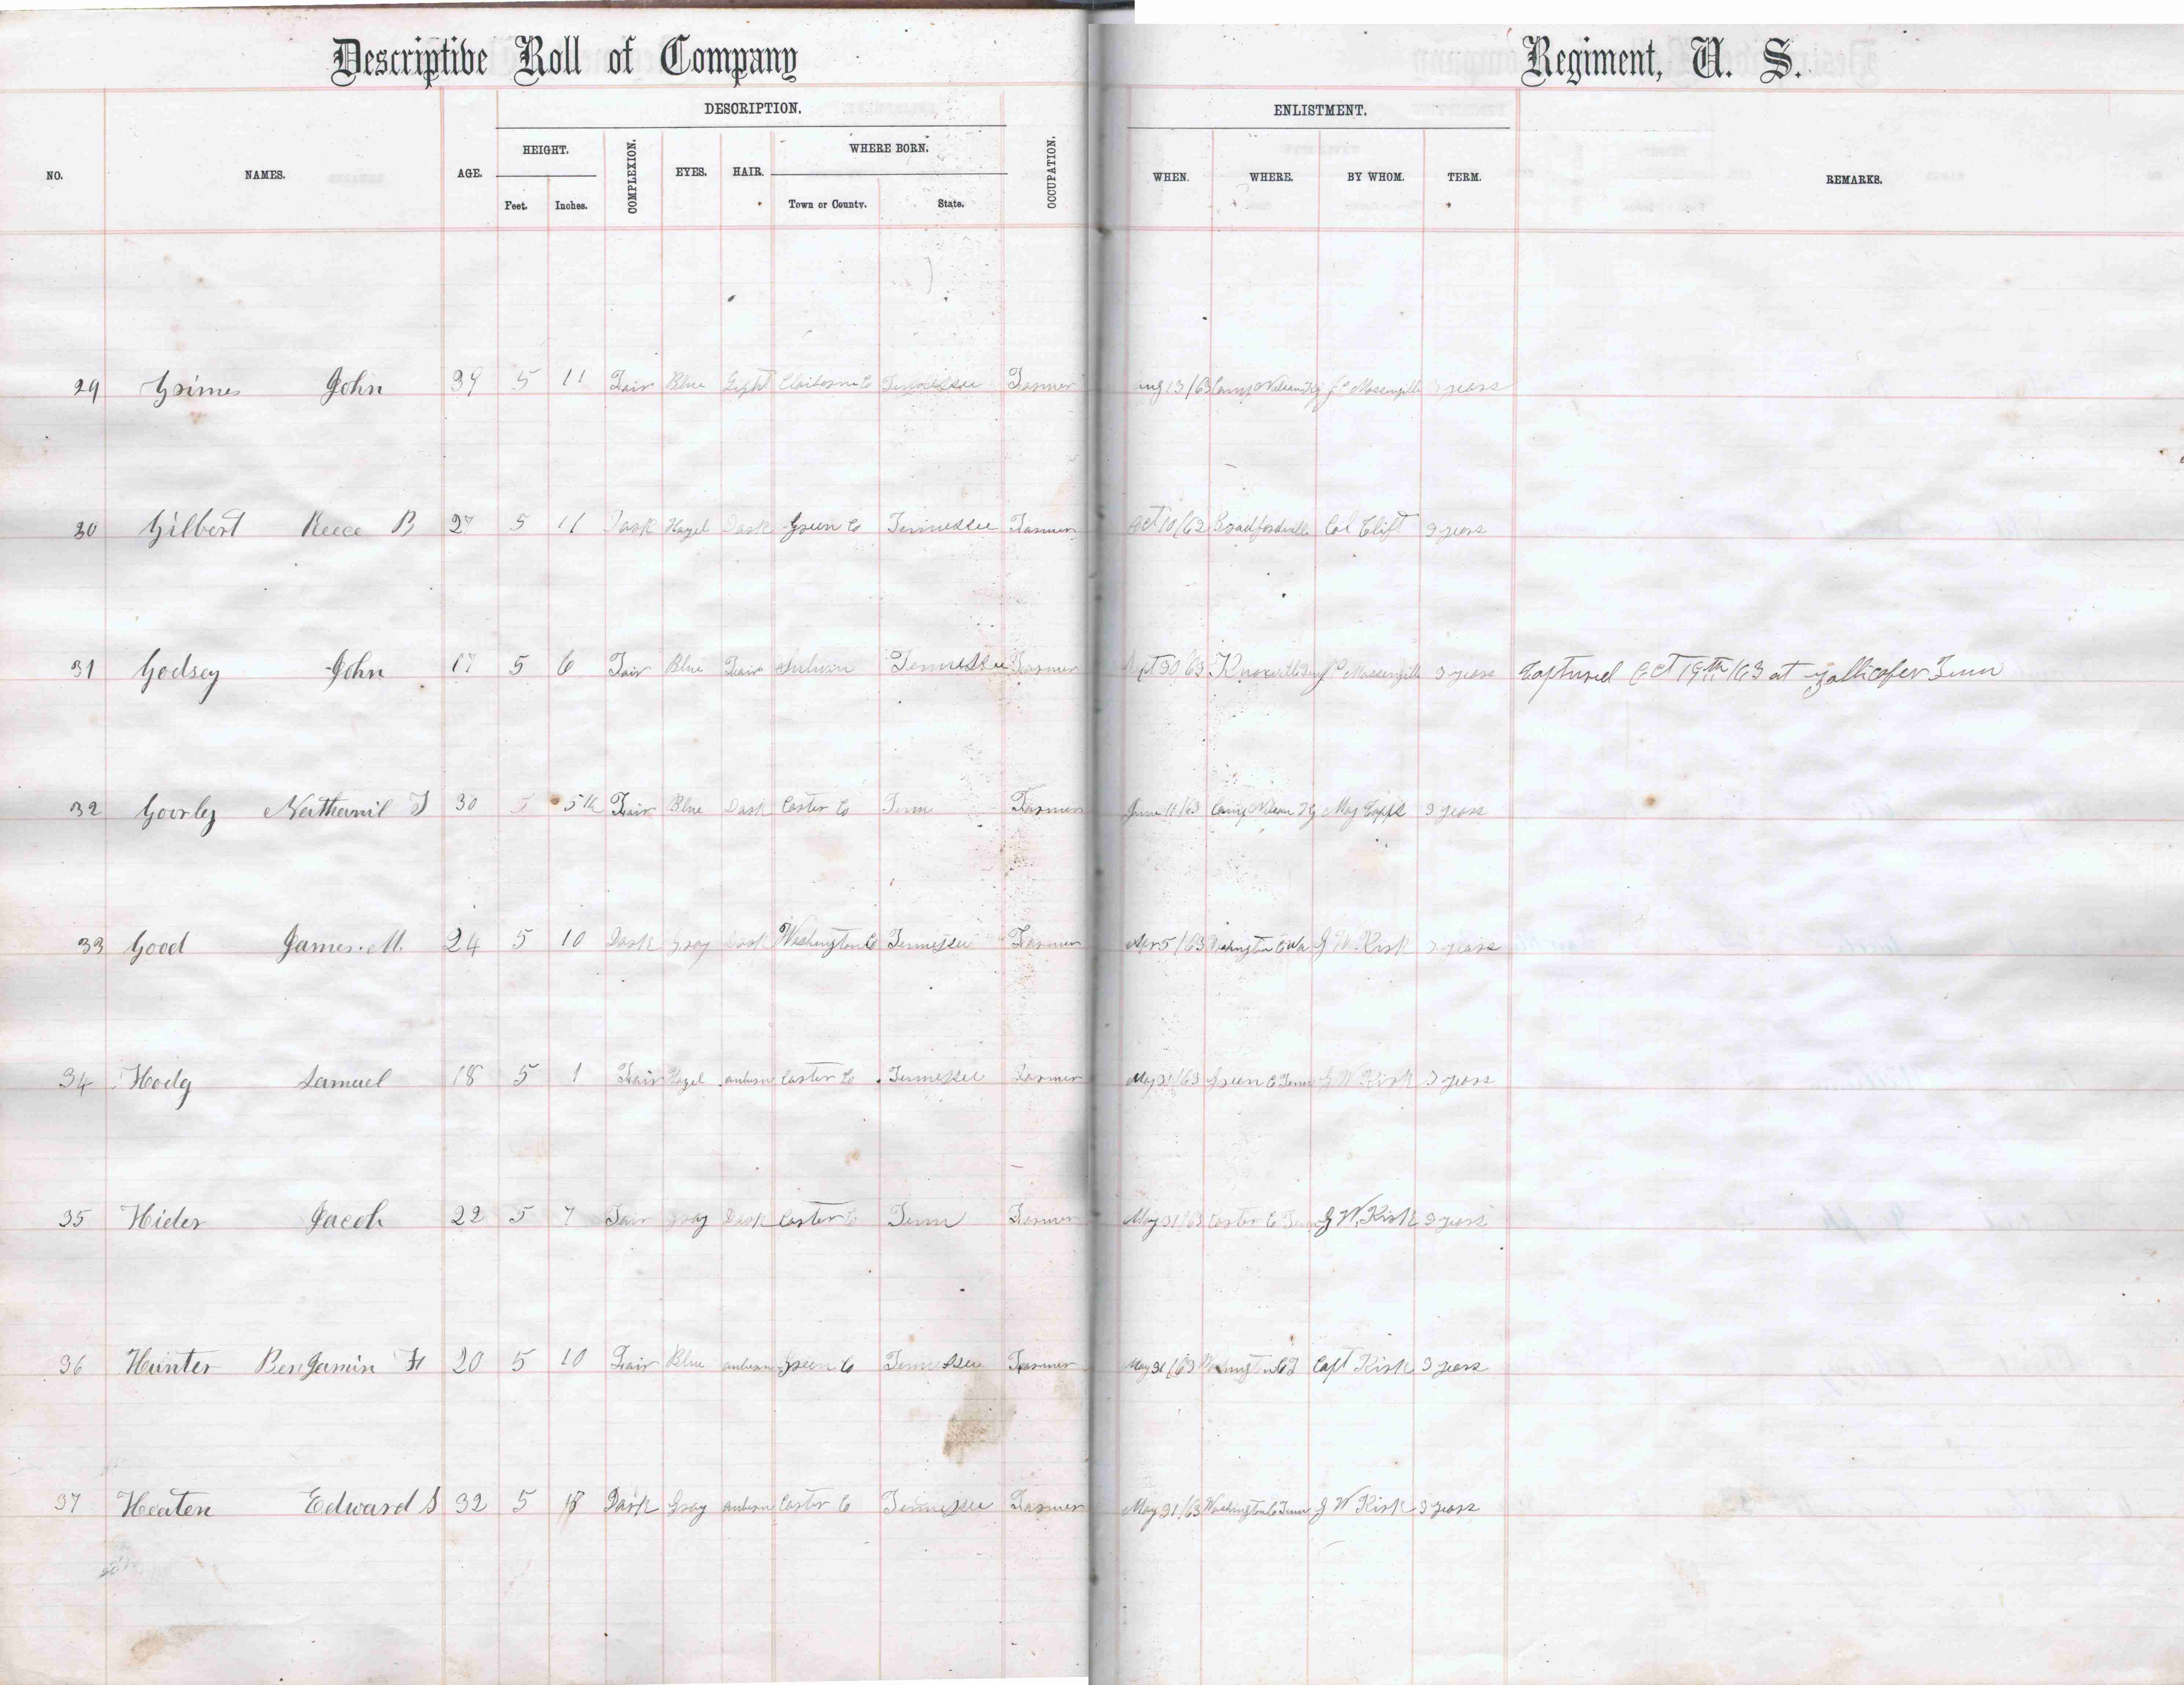 Descriptive Roll of Company Regiment, U. S.
DESCRIPTION. ENLISTMENT.
NO. NAMES. AGE. HEIGHT. COMPLEXION. EYES. HAIR. WHERE BORN. OCCUPATION. WHEN. WHERE. BY WHOM. TERM. REMARKS.
Feet. Inches. Town or County. State.
29 Grimes John 39 5 11 Fair Blue Light Claiborne Co Tennessee Farmer Aug 13/63 Camp Nelson Ky Massengill 3 years
30 Gilbert Reece B 27 5 11 Dark Hazel Dark Green Co Tennessee Farmer Oct 10/62 Bradfordsville Col Clift 3 years
31 Godsey John 17 5 6 Fair Blue Fair Sulivan Tennessee Farmer Sept 30/63 Knoxville Massengill 3 years Captured Oct 19th/63 at Zollicofer Tenn
32 Goorley Nathanil T 30 5 5½ Fair Blue Dark Carter Co Tenn Farmer June 11/63 Camp Nelson Ky Maj 3 years
33 Good James M. 24 5 10 Dark Gray Dark Washington Co Tennessee Farmer Apr 5/63 Washington Co G W. Kirk 3 years
34 Hodg Samuel 18 5 1 Fair Hazel auburn Carter Co Tennessee Farmer May 31/63 Green Co Tenn G W Kirk 3 years
35 Hider Jacob 22 5 7 Fair Gray Dark Carter Co Tenn Farmer May 31/63 Carter Co Tenn G W. Kirk 3 years
36 Hunter Benjamin F 20 5 10 Fair Blue auburn Green Co Tennessee Farmer May 31/63 Washington Co T Capt Kirk 3 years
37 Heaten Edward S 32 5 Dark Gray auburn Carter Co Tennessee Farmer May 31/63 Washington Co Tenn G W Kirk 3 years